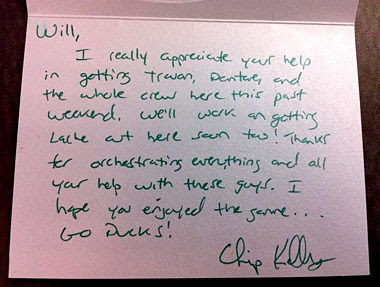 Will,
I really appreciate your help
in getting Travon, Dontae, and
the whole crew here this past
weekend. We'll work on getting
Lache out here soon too! Thanks
for orchestrating everything and all
your help with these guys. I
hope you enjoyed the game...
GO DUCKS!
Chip Kelly